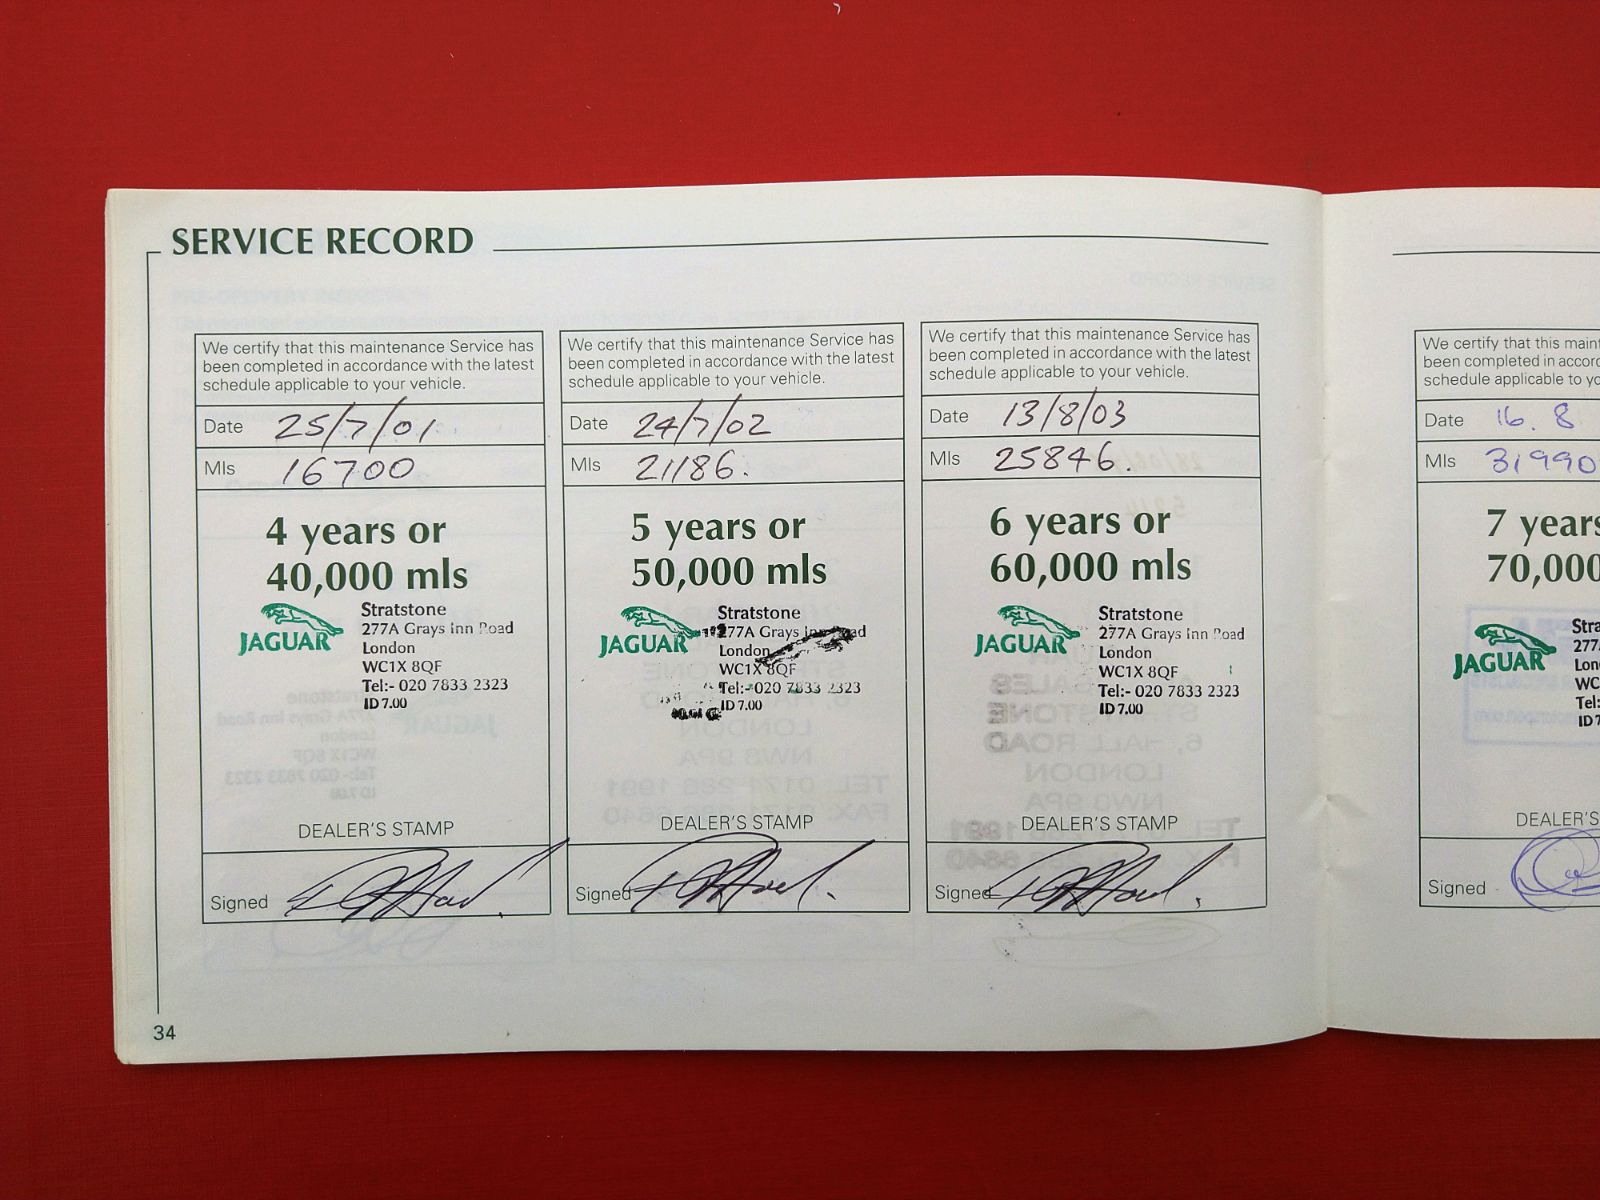 SERVICE RECORD
We certify that this maintenance Service has
been completed in accordance with the latest
schedule applicable to your vehicle.
Date 25/7/01
Mls 16700
4 years or
40,000 mls
JAGUAR
Stratstone
277A Grays Inn Road
London
WC1X 8QF
Tel:- 020 7833 2323
ID 7.00
DEALER'S STAMP
Signed
We certify that this maintenance Service has
been completed in accordance with the latest
schedule applicable to your vehicle.
Date 24/7/02
Mls 21186.
5 years or
50,000 mls
JAGUAR
Stratstone
277A Grays Inn Road
London
WC1X 8QF
Tel:- 020 7833 2323
ID 7.00
DEALER'S STAMP
Signed
We certify that this maintenance Service has
been completed in accordance with the latest
schedule applicable to your vehicle.
Date 13/8/03
Mls 25846.
6 years or
60,000 mls
JAGUAR
Stratstone
277A Grays Inn Road
London
WC1X 8QF
Tel:- 020 7833 2323
ID 7.00
DEALER'S STAMP
Signed
34
We certify that this maint
been completed in accor
schedule applicable to yo
Date 16. 8
Mls 31990
7 years
70,000
JAGUAR
Stra
277
Lon
WC
Tel:
ID 7
DEALER'S
Signed